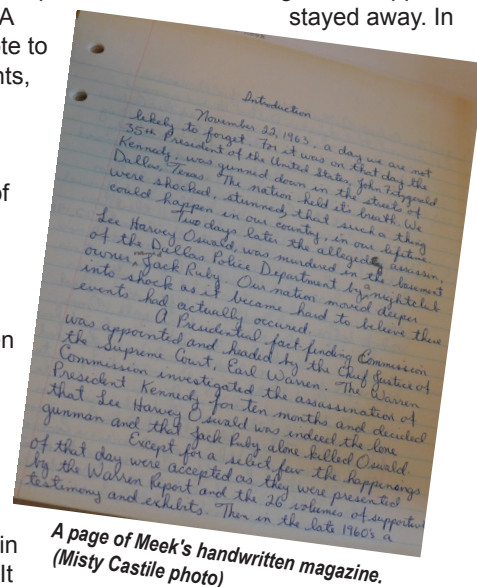 stayed away. In
A
ote to
nts,
of
on
in
It
Introduction
November 22, 1963, a day we are not
likely to forget. For it was on that day the
35th President of the United States, John Fitzgerald
Kennedy, was gunned down in the streets of
Dallas, Texas. The nation held its breath. We
were shocked, stunned, that such a thing
could happen in our country, in our lifetime.
Two days later the alleged assassin,
Lee Harvey Oswald, was murdered in the basement
of the Dallas Police Department by a nightclub
owner named Jack Ruby. Our nation moved deeper
into shock as it became hard to believe these
events had actually occured.
A Presidential fact-finding Commission
was appointed and headed by the Chief Justice of
the Supreme Court, Earl Warren. The Warren
Commission investigated the assassination of
President Kennedy for ten months and decided
that Lee Harvey Oswald was indeed the lone
gunman and that Jack Ruby alone killed Oswald.
Except for a select few the happenings
of that day were accepted as they were presented
by the Warren Report and the 26 volumes of supportive
testimony and exhibits. Then in the late 1960's a
A page of Meek's handwritten magazine.
(Misty Castile photo)